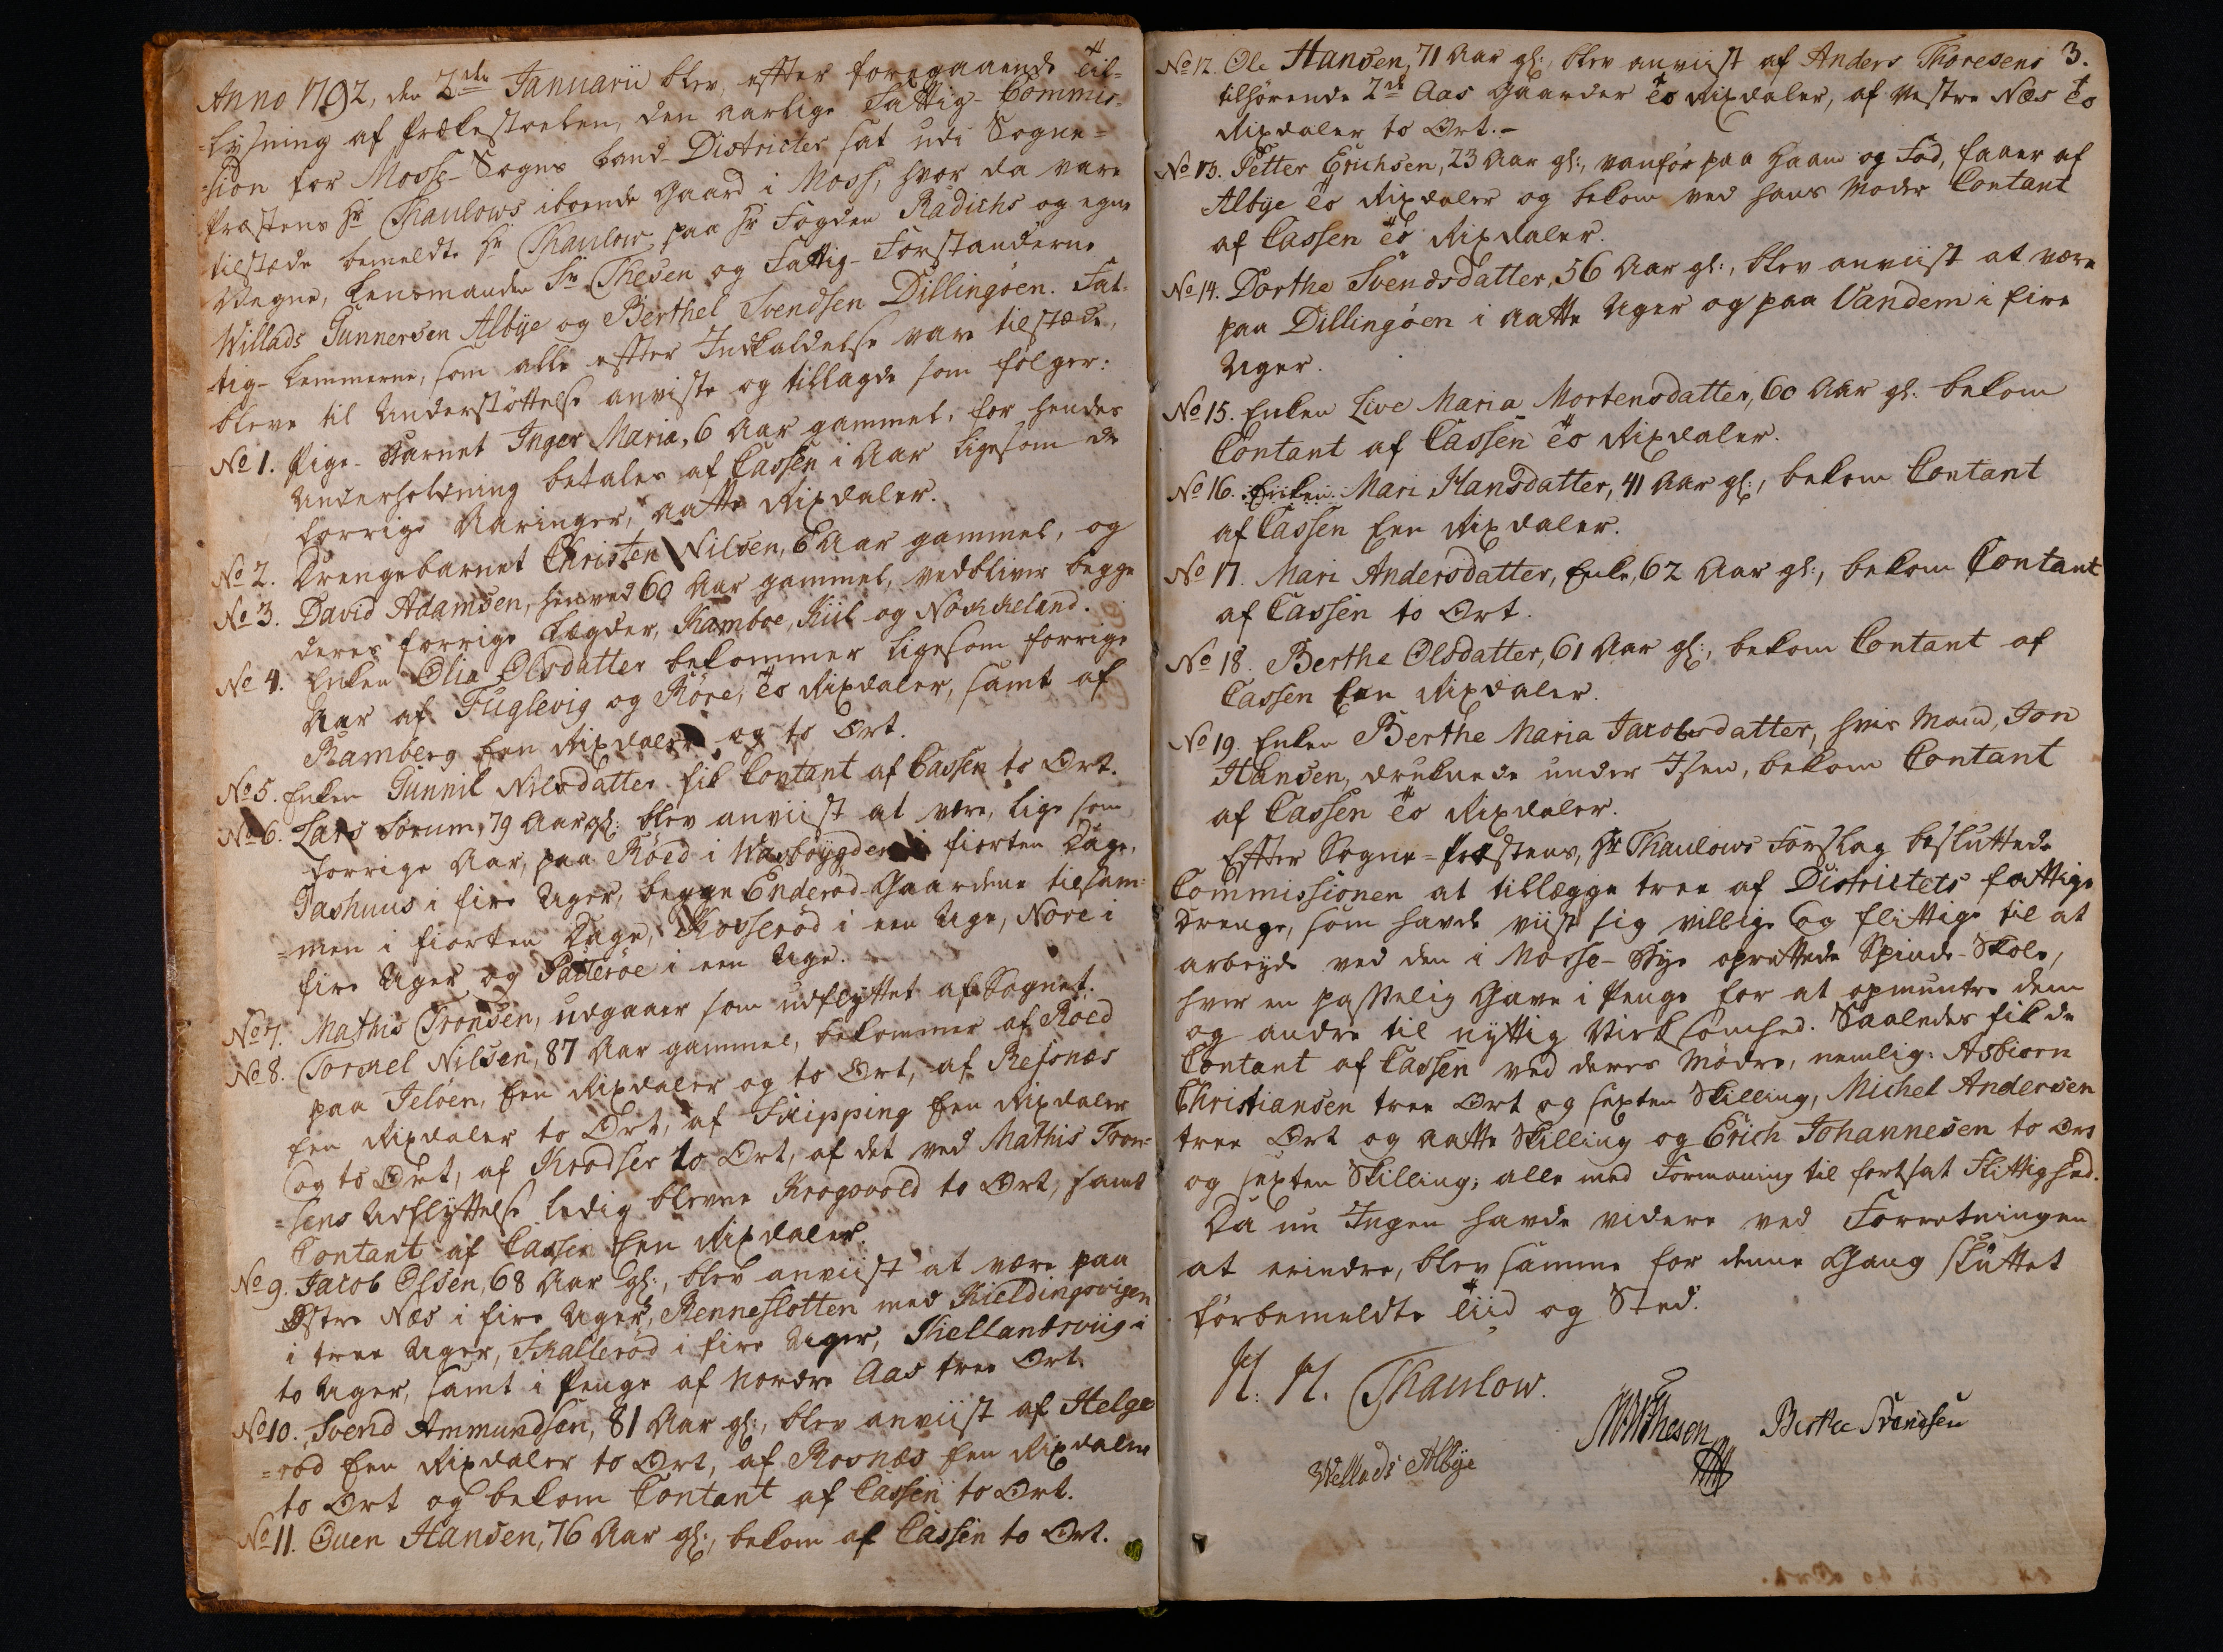 Anno 1792, den 2den Januarii blev, efter foregaaende Til-
=lysning af Prækestoelen, den aarlige Fattig-Commis-
=sion for Mosse-Sogns Land-Districter sat udi Sogne=
Præstens Hr Thaulows iboende Gaard i Moss, hvor da vare
tilstæde bemeldte Hr Thaulow, paa Hr Fogden Radichs og egne
Vegne, Lensmanden Sr Thesen og Fattig-Forstanderne
Willads Gunnersen Albye og Berthel Svendsen Dillingøen. Fat-
tig-Lemmerne, som alle efter Indkaldelse vare tilstæde,
bleve til Understøttelse anviiste og tillagde som følger:
No 1. Pige-Barnet Inger Maria, 6 Aar gammel, for hendes
Underholdning betales af Cassen i Aar ligesom de
forrige Aaringer, aatte Rixdaler.
No 2. Drengebarnet Christen Nilsen, 6 Aar gammel, og
No 3. David Adamsen, henved 60 Aar gammel, vedbliver begge
deres forrige Lægder, Kamboe, Kiil og Nøkkeland.
No 4. Enken Olia Olsdatter bekommer ligesom forrige
Aar af Fuglevig og Røre, to Rixdaler, samt af
Ramberg Een Rixdaler og to Ort.
No 5. Enken Gunnil Nilsdatter fik Contant af Cassen to Ort.
No 6. Lars Sørum, 79 Aar gl: blev anviist at være, lige som
forrige Aar, paa Røed i Wasbøygden i fiorten Dage,
Gashuus i fire Uger, begge Enderød-Gaardene tilsam=
=men i fiorten Dage, Kosserød i een Uge, Nore i
fire Uger og Patterøe i een Uge.
No 7. Mathis Tronsen, udgaaer som udflyttet af Sognet.
No 8. Torkel Nilsen, 87 Aar gammel, bekommer af Roed
paa Jeløen, Een Rixdaler og to Ort, af Refsnæs
Een Rixdaler to Ort, af Skipping Een Rixdaler
og to Ort, af Krodser to Ort, af det ved Mathis Tron=
=sens Udflyttelse ledig blevne Krogsvold to Ort, samt
Contant af Cassen Een Rixdaler.
No 9. Jacob Olsen, 68 Aar gl:, blev anviist at være paa
Østre Næs i fire Uger, Renneslotten med Kieldingsvigen
i tree Uger, Skallerød i fire Uger, Kiellandsviig i
to Uger, samt i Penge af Nordre Aas tree Ort.
No 10. Svend Ammundsen, 81 Aar gl:, blev anviist af Helge
=rød Een Rixdaler to Ort, af Rosnæs Een Rixdaler
to Ort og bekom Contant af Cassen to Ort.
No 11. Ouen Hansen, 76 Aar gl:, bekom af Cassen to Ort.
3.
No 12. Ole Hansen, 71 Aar gl:, blev anviist af Anders Thoresens
tilhørende 2de Aas Gaarder to Rixdaler, af Vestre Næs to
Rixdaler to Ort.-
No 13. Petter Erichsen, 23 Aar gl:, vanfør paa Haand og Fod, faaer af
Albye to Rixdaler og bekom ved hans Moder Contant
af Cassen to Rixdaler.
No 14. Dorthe Svendsdatter, 56 Aar gl:, blev anviist at være
paa Dillingøen i aatte Uger og paa Vandem i fire
Uger.
No 15. Enken Live Maria Mortensdatter, 60 Aar gl. bekom
Contant af Cassen to Rixdaler.
No 16. Enken Mari Hansdatter, 41 Aar gl:, bekom Contant
af Cassen Een Rixdaler.
No 17. Mari Andersdatter, Enke, 62 Aar gl:, bekom Contant
af Cassen to Ort.
No 18. Berthe Olsdatter, 61 Aar gl:, bekom Contant af
Cassen Een Rixdaler.
No 19. Enken Berthe Maria Jacobsdatter, hvis Mand, Jon
Hansen, druknede under Isen, bekom Contant
af Cassen to Rixdaler.
Efter Sogne=Præstens, Hr Thaulows Forslag besluttede
Commissionen at tillægge tree af Districtets fattige
Drenge, som havde viist sig villige og flittige til at
arbeyde ved den i Mosse-Bye oprettede Spinde-Skole,
hver en passelig Gave i Penge for at opmuntre dem
og andre til nyttig Virksomhed. Saaledes fik de
Contant af Cassen ved deres Mødre, nemlig: Asbiørn
Christiansen tree Ort og sexten Skilling, Michel Andersen
tree Ort og aatte Skilling og Erich Johannesen to Ort
og sexten Skilling; alle med Formaning til fortsat Flittighed.
Da nu Ingen havde videre ved Forretningen
at erindre, blev samme for denne Gang sluttet
forbemeldte Tiid og Sted.
H. H. Thaulow.
Thesen Berthel Svendsen
Wellads Albye